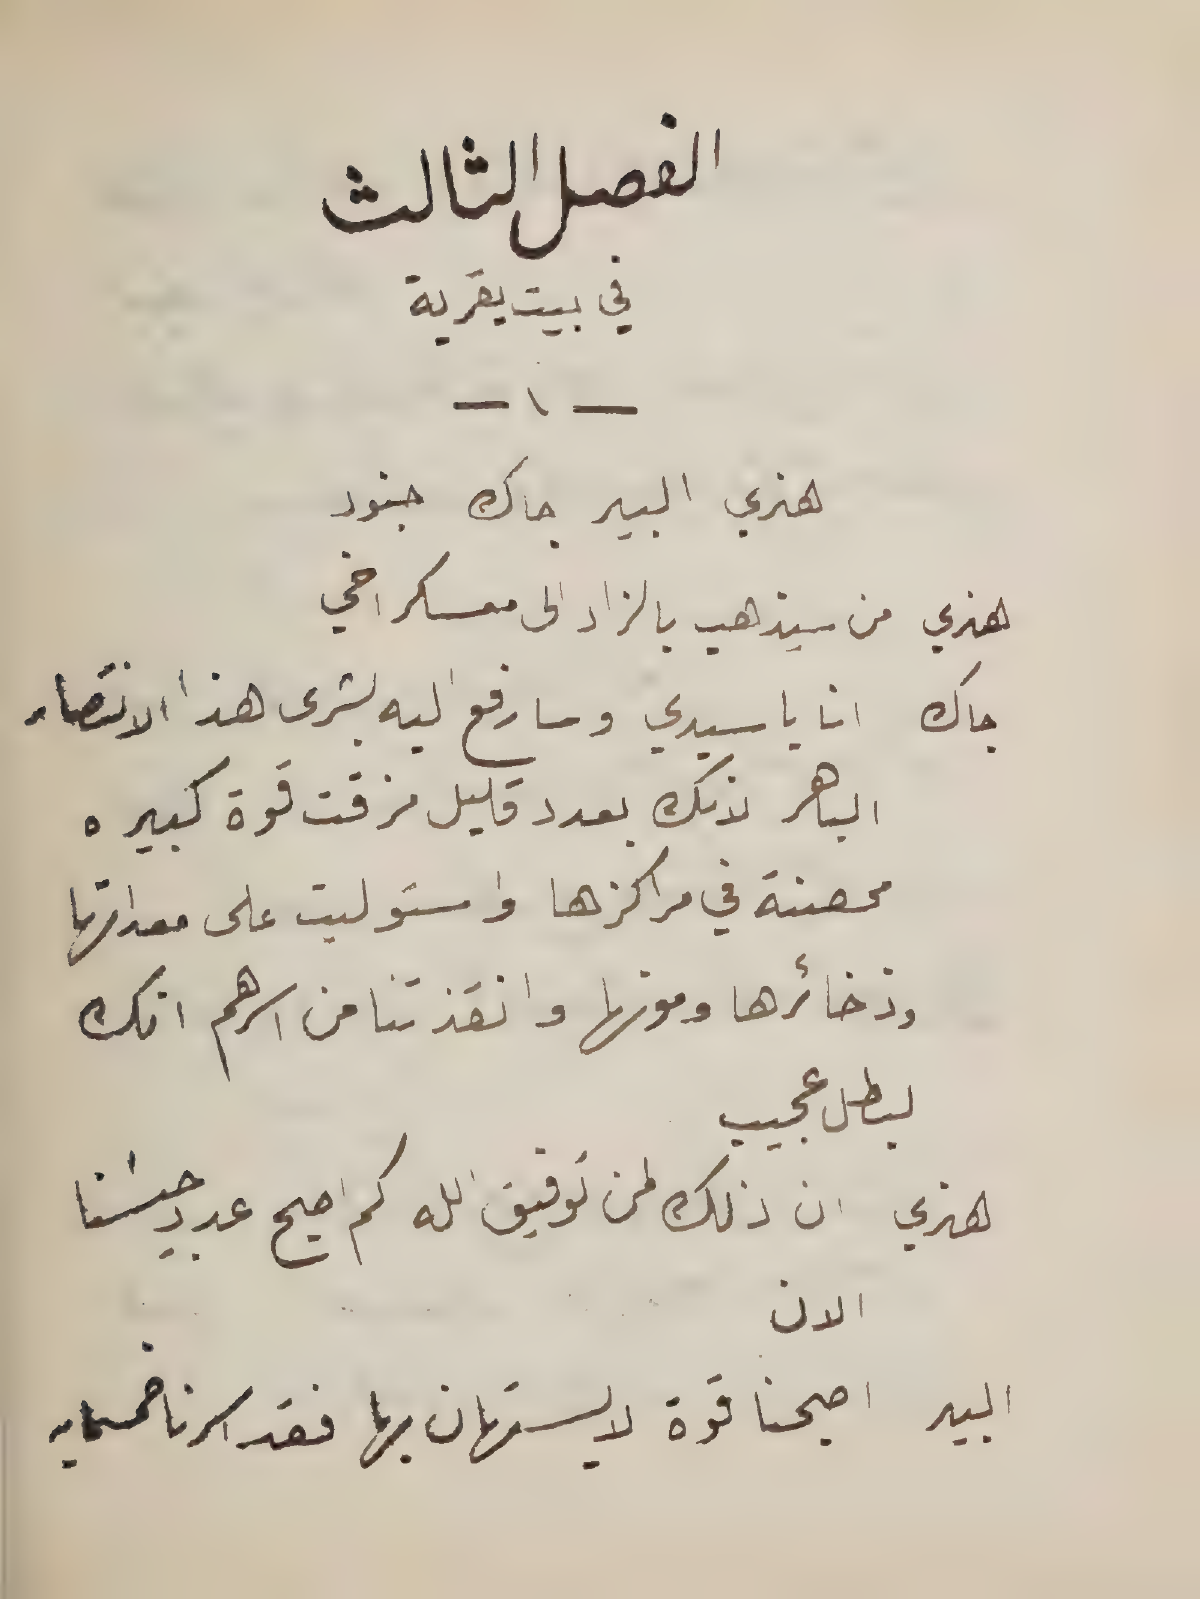 الفصل الثالث
في بيت بقرية
— ١ —
هنري البير جاك جنود
هنري من سيذهب بالزاد الى معسكر اخي
جاك انا يا سيدي وسارفع اليه بشرى هذا الانتصار
الباهر لانك بعدد قليل مزقت قوة كبيره
محصنة في مراكزها واستوليت على معداتها
وذخائرها ومونها وانقذتنا من اسرهم انك
لبطل عجيب
هنري ان ذلك لمن توفيق الله كم اصبح عدد جيشنا
الان
البير اصبحنا قوة لا يستهان بها فقد اسرنا خمسمايه